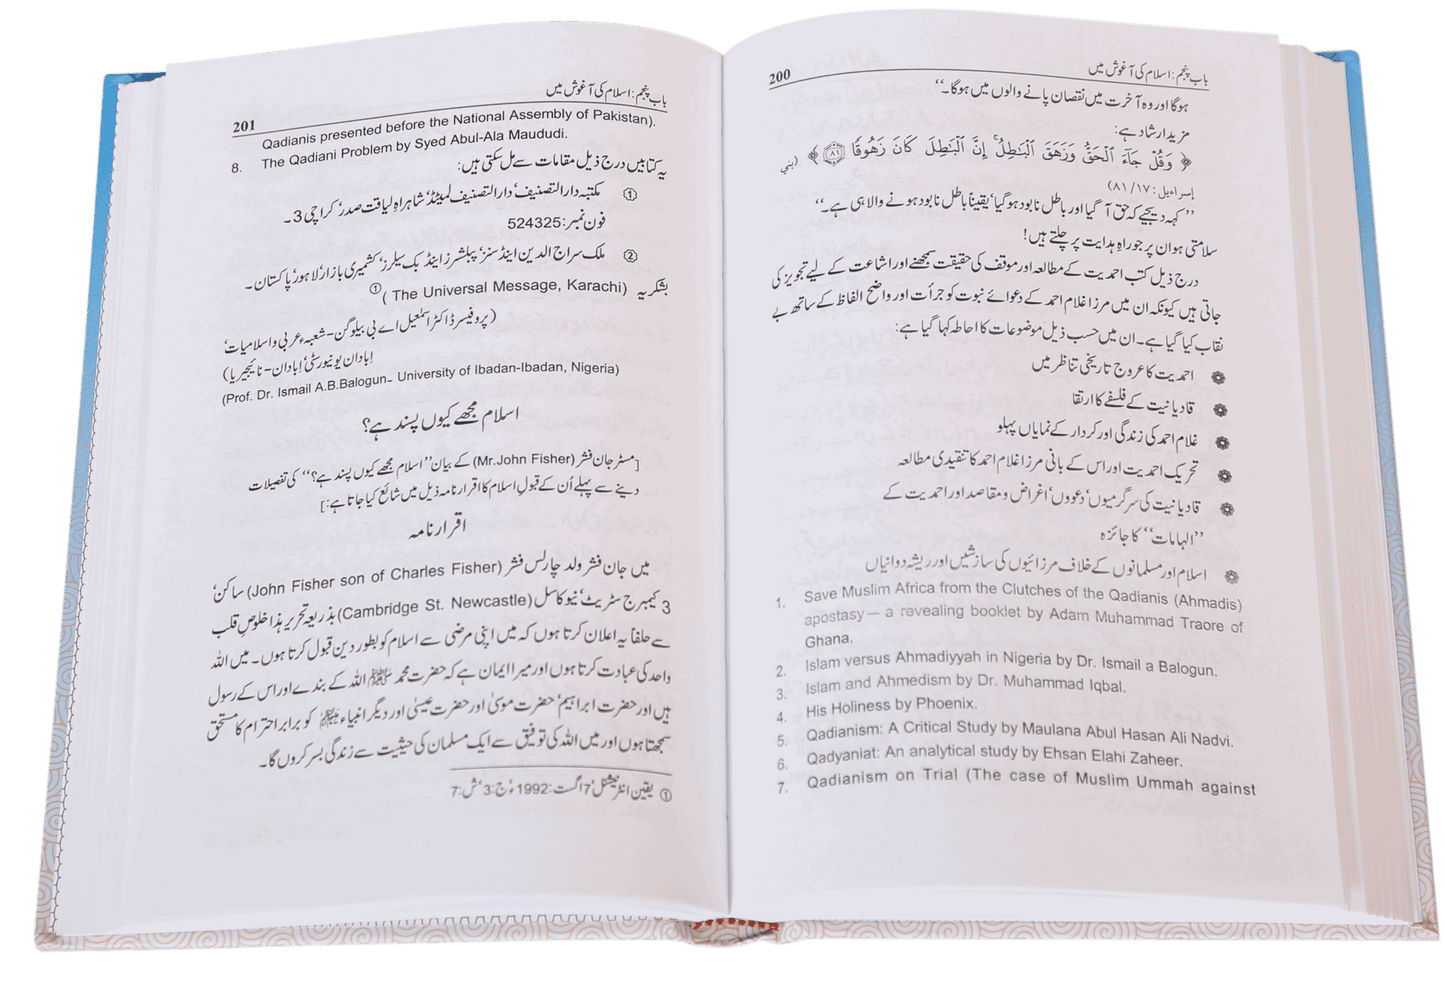 200
باب پنجم: اسلام کی آغوش میں
ہوگا اور وہ آخرت میں نقصان پانے والوں میں ہوگا۔‘‘
مزید ارشاد ہے:
﴿ وَقُلْ جَآءَ ٱلْحَقُّ وَزَهَقَ ٱلْبَـٰطِلُ ۚ إِنَّ ٱلْبَـٰطِلَ كَانَ زَهُوقًا ﴿٨١﴾ ﴾ (بني
إسراءيل: ٨١/١٧)
’’ کہہ دیجیے کہ حق آ گیا اور باطل نابود ہو گیا‘ یقیناً باطل نابود ہونے والا ہی ہے۔‘‘
سلامتی ہو ان پر جو راہِ ہدایت پر چلتے ہیں!
درج ذیل کتب احمدیت کے مطالعہ اور موقف کی حقیقت سمجھنے اور اشاعت کے لیے تجویز کی
جاتی ہیں کیونکہ ان میں مرزا غلام احمد کے دعوائے نبوت کو جرأت اور واضح الفاظ کے ساتھ بے
نقاب کیا گیا ہے۔ ان میں حسب ذیل موضوعات کا احاطہ کیا گیا ہے:
احمدیت کا عروج تاریخی تناظر میں
قادیانیت کے فلسفے کا ارتقا
غلام احمد کی زندگی اور کردار کے نمایاں پہلو
تحریک احمدیت اور اس کے بانی مرزا غلام احمد کا تنقیدی مطالعہ
قادیانیت کی سرگرمیوں‘ دعووں‘ اغراض و مقاصد اور احمدیت کے
’’الہامات‘‘ کا جائزہ
اسلام اور مسلمانوں کے خلاف مرزائیوں کی سازشیں اور ریشہ دوانیاں
1. Save Muslim Africa from the Clutches of the Qadianis (Ahmadis)
apostasy— a revealing booklet by Adam Muhammad Traore of
Ghana.
2. Islam versus Ahmadiyyah in Nigeria by Dr. Ismail a Balogun.
3. Islam and Ahmedism by Dr. Muhammad Iqbal.
4. His Holiness by Phoenix.
5. Qadianism: A Critical Study by Maulana Abul Hasan Ali Nadvi.
6. Qadyaniat: An analytical study by Ehsan Elahi Zaheer.
7. Qadianism on Trial (The case of Muslim Ummah against
201
باب پنجم: اسلام کی آغوش میں
Qadianis presented before the National Assembly of Pakistan).
8. The Qadiani Problem by Syed Abul-Ala Maududi.
یہ کتابیں درج ذیل مقامات سے مل سکتی ہیں:
① مکتبہ دارالتصنیف‘ دارالتصنیف لمیٹڈ‘ شاہراہ لیاقت صدر‘ کراچی 3۔
فون نمبر: 524325
② ملک سراج الدین اینڈ سنز‘ پبلشرز اینڈ بک سیلرز‘ کشمیری بازار‘ لاہور‘ پاکستان۔
بشکریہ (The Universal Message, Karachi )①
(پروفیسر ڈاکٹر اسمٰعیل اے بی بیلوگن- شعبہء عربی و اسلامیات‘
اِبادان یونیورسٹی‘ اِبادان- نائیجیریا)
(Prof. Dr. Ismail A.B.Balogun- University of Ibadan-Ibadan, Nigeria)
اسلام مجھے کیوں پسند ہے؟
[مسٹر جان فشر (Mr.John Fisher) کے بیان ’’اسلام مجھے کیوں پسند ہے؟‘‘ کی تفصیلات
دینے سے پہلے اُن کے قبولِ اسلام کا اقرار نامہ ذیل میں شائع کیا جاتا ہے:]
اقرار نامہ
میں جان فشر ولد چارلس فشر (John Fisher son of Charles Fisher) ساکن‘
3 کیمبرج سٹریٹ‘ نیو کاسل (Cambridge St. Newcastle) بذریعہ تحریر ہذا خلوصِ قلب
سے حلفاً یہ اعلان کرتا ہوں کہ میں اپنی مرضی سے اسلام کو بطور دین قبول کرتا ہوں۔ میں اللہ
واحد کی عبادت کرتا ہوں اور میرا ایمان ہے کہ حضرت محمد ﷺ اللہ کے بندے اور اس کے رسول
ہیں اور حضرت ابراہیم‘ حضرت موسیٰ اور حضرت عیسیٰ اور دیگر انبیاء ﷩ کو برابر احترام کا مستحق
سمجھتا ہوں اور میں اللہ کی توفیق سے ایک مسلمان کی حیثیت سے زندگی بسر کروں گا۔
① یقین انٹرنیشنل‘ 7 اگست: 1992ء‘ ج: 3‘ ش: 7